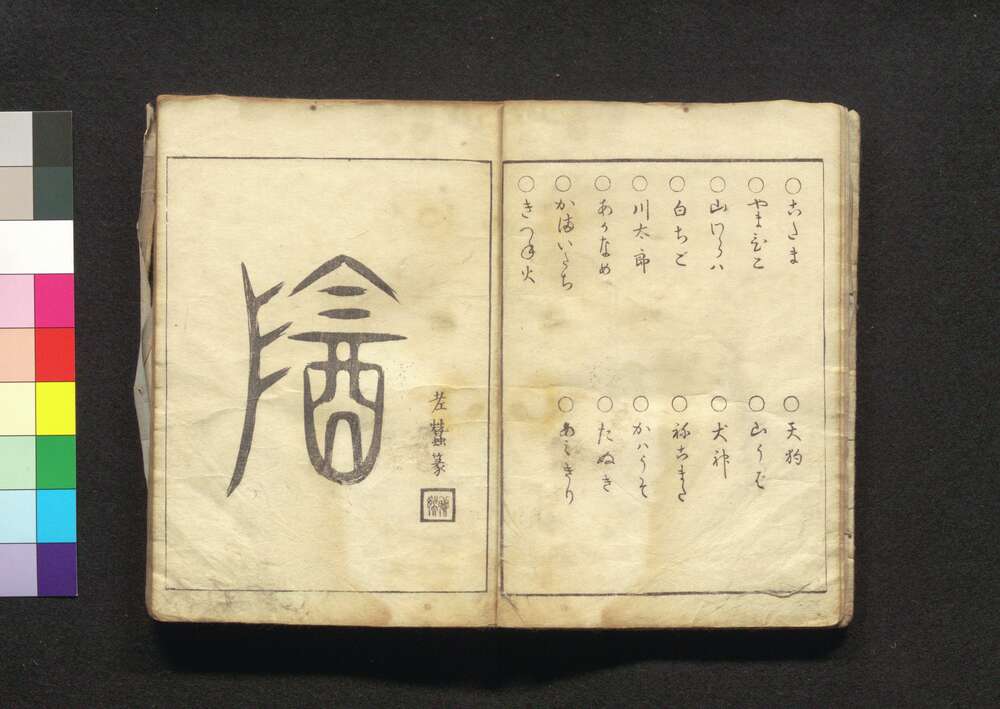 ○こたま ○天狗
○やまびこ ○山うば
○山わらハ ○犬神
○白ちご ○ねこまた
○川太郎 ○かハうそ
○あかなめ ○たぬき
○かまいたち ○あみきり
○きつね火
陰
篆